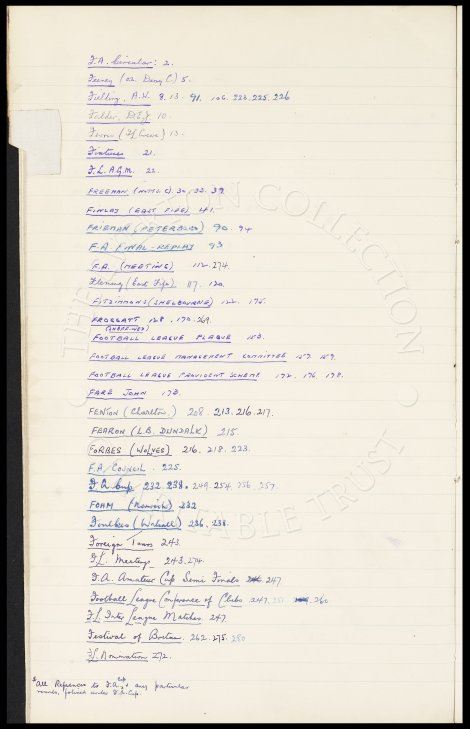 F.A. Circular: 2.
Feeney (on. Derry C) 5.
Fielding, A.W. 8. 13. 91. 106. 223. 225. 226
Felder, 10.
Ferns ( ) 13.
Fixtures 21.
F.L. A.G.M. 22.
FREEMAN, (NOTTS. C). 30, 33. 39
FINLAY (EAST FIFE) 41.
FRIEMAN (PETERBORO) 90 94
F.A FINAL-REPLAY 93
F.A. (MEETING) 112. 274.
Fleming (East Fife) 117. 120.
FITZIMMONS (SHELBOURNE) 122. 175.
FROGGATT 128. 170. 269.
(SHEFF. WED)
FOOTBALL LEAGUE PLAQUE 153.
FOOTBALL LEAGUE MANAGEMENT COMMITTEE 157. 159.
FOOTBALL LEAGUE PROVIDENT SCHEME 172. 176. 178.
FARE JOHN 173.
FENTON (Charlton,) 208. 213. 216. 217.
FEARON (L.B. DUNDALK) 215.
FORBES (WOLVES) 216. 218. 223.
F.A. COUNCIL. 225.
F.A. Cup 232. 238. 249. 254. 256. 257.
FOAM (Norwich) 232
Foulkes (Walsall) 236. 238.
Foreign Tours 243.
F.L. Meetings 243. 274.
F.A. Amateur Cup Semi Finals 247
Football League Conference of Clubs 247. 251. 260
F.L. Inter League Matches. 247.
Festival of Britain. 262. 275. 280
F.L Nomination 272.
*All References to F.A. Cup, & any particular
rounds, filed under F.A. Cup.
THE COLLECTION
CHARITABLE TRUST